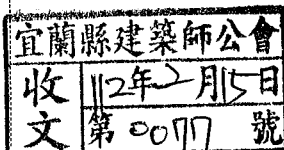 宜蘭縣建築師公會
收文 112年2月15日
第0077號